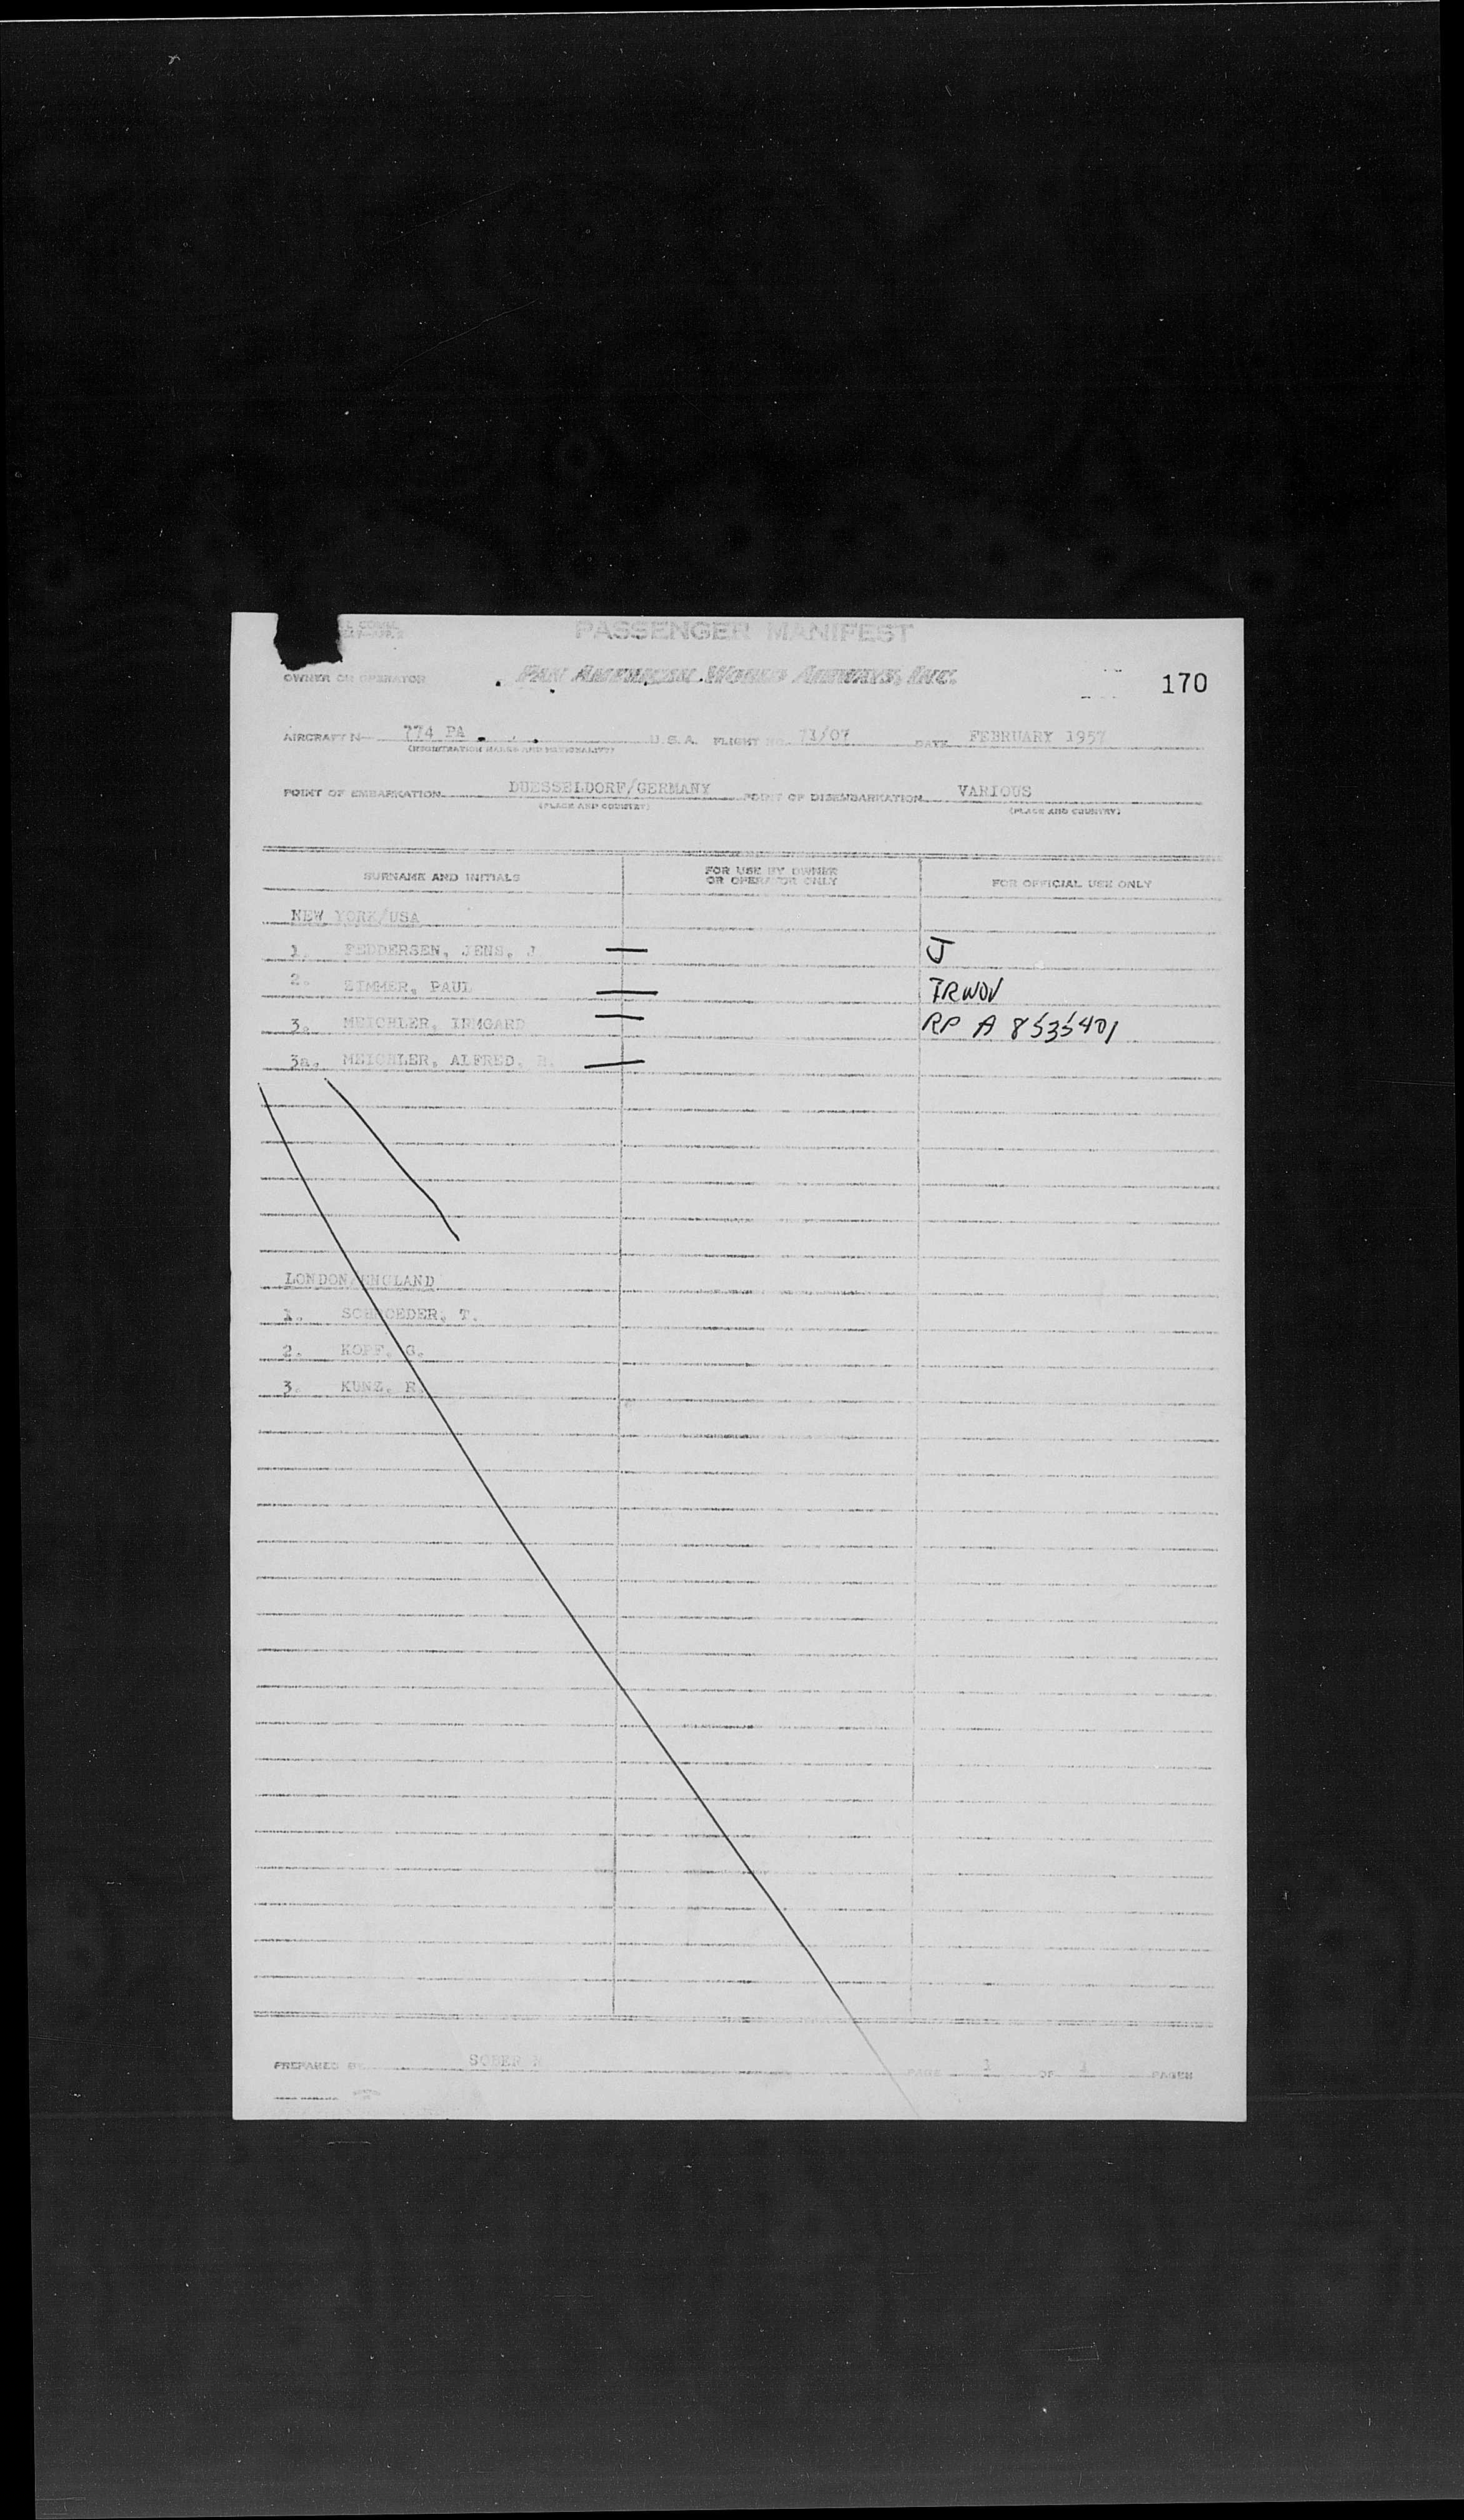 PASSENGER MANIFEST
OWNER OR OPERATOR PAN AMERICAN WORLD AIRWAYS, INC. 170
AIRCRAFT N— 774 PA U.S.A. FLIGHT NO. 71/07 DATE FEBRUARY 1957
(REGISTRATION MARKS AND NATIONALITY)
POINT OF EMBARKATION DUESSELDORF/GERMANY POINT OF DISEMBARKATION VARIOUS
(PLACE AND COUNTRY) (PLACE AND COUNTRY)
SURNAME AND INITIALS FOR USE BY OWNER OR OPERATOR ONLY FOR OFFICIAL USE ONLY
NEW YORK/USA
1. FEDDERSEN, JENS, J — J
2. ZIMMER, PAUL —
3. MEICHLER, IRMGARD — RP A 8535401
3a. MEICHLER, ALFRED, H. —
LONDON/ENGLAND
1. SCHROEDER, T.
2. KOPF, G.
3. KUNZ, R.
PREPARED BY SOBER PAGE 1 OF 1 PAGES